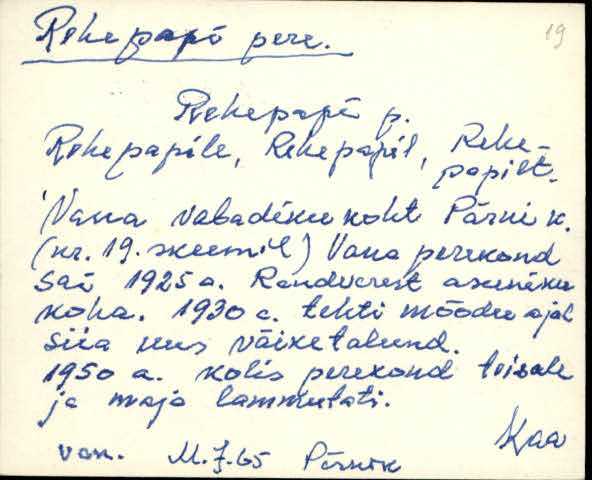 19
Rehepapi pere.
Rehepapi p.
Rehepapile, Rehepapil, Rehe-
papilt.
Vana vabadiku koht Pärni k.
(nr. 19. skeemil) Vana perekond
sai 1925 a. Randverest asuniku
koha. 1930 a. tehti mõõdu ajal
siia uus väiketalund.
1950 a. kolis perekond teisale
ja maja lammutati.
Kaa
van. M. J. 65 Pärnik